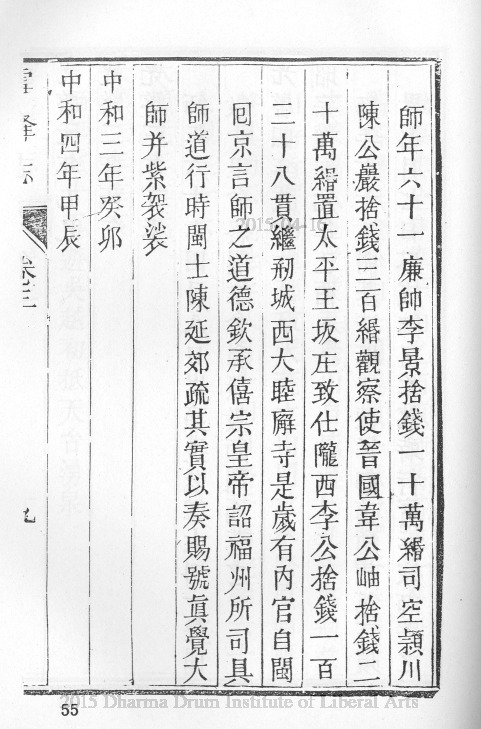 師年六十一廉帥李景捨錢一十萬緡司空潁川
陳公巖捨錢三百緡觀察使晉國韋公岫捨錢二
十萬緡置太平王坂庄致仕隴西李公捨錢一百
三十八貫繼剏城西大睦廨寺是歲有內官自閩
囘京言師之道德欽承僖宗皇帝詔福州所司具
師道行時閩士陳延郊疏其實以奏賜號眞覺大
師并紫袈裟
中和三年癸卯
中和四年甲辰
卷之三
2015.04.16
2015 Dharma Drum Institute of Liberal Arts
55